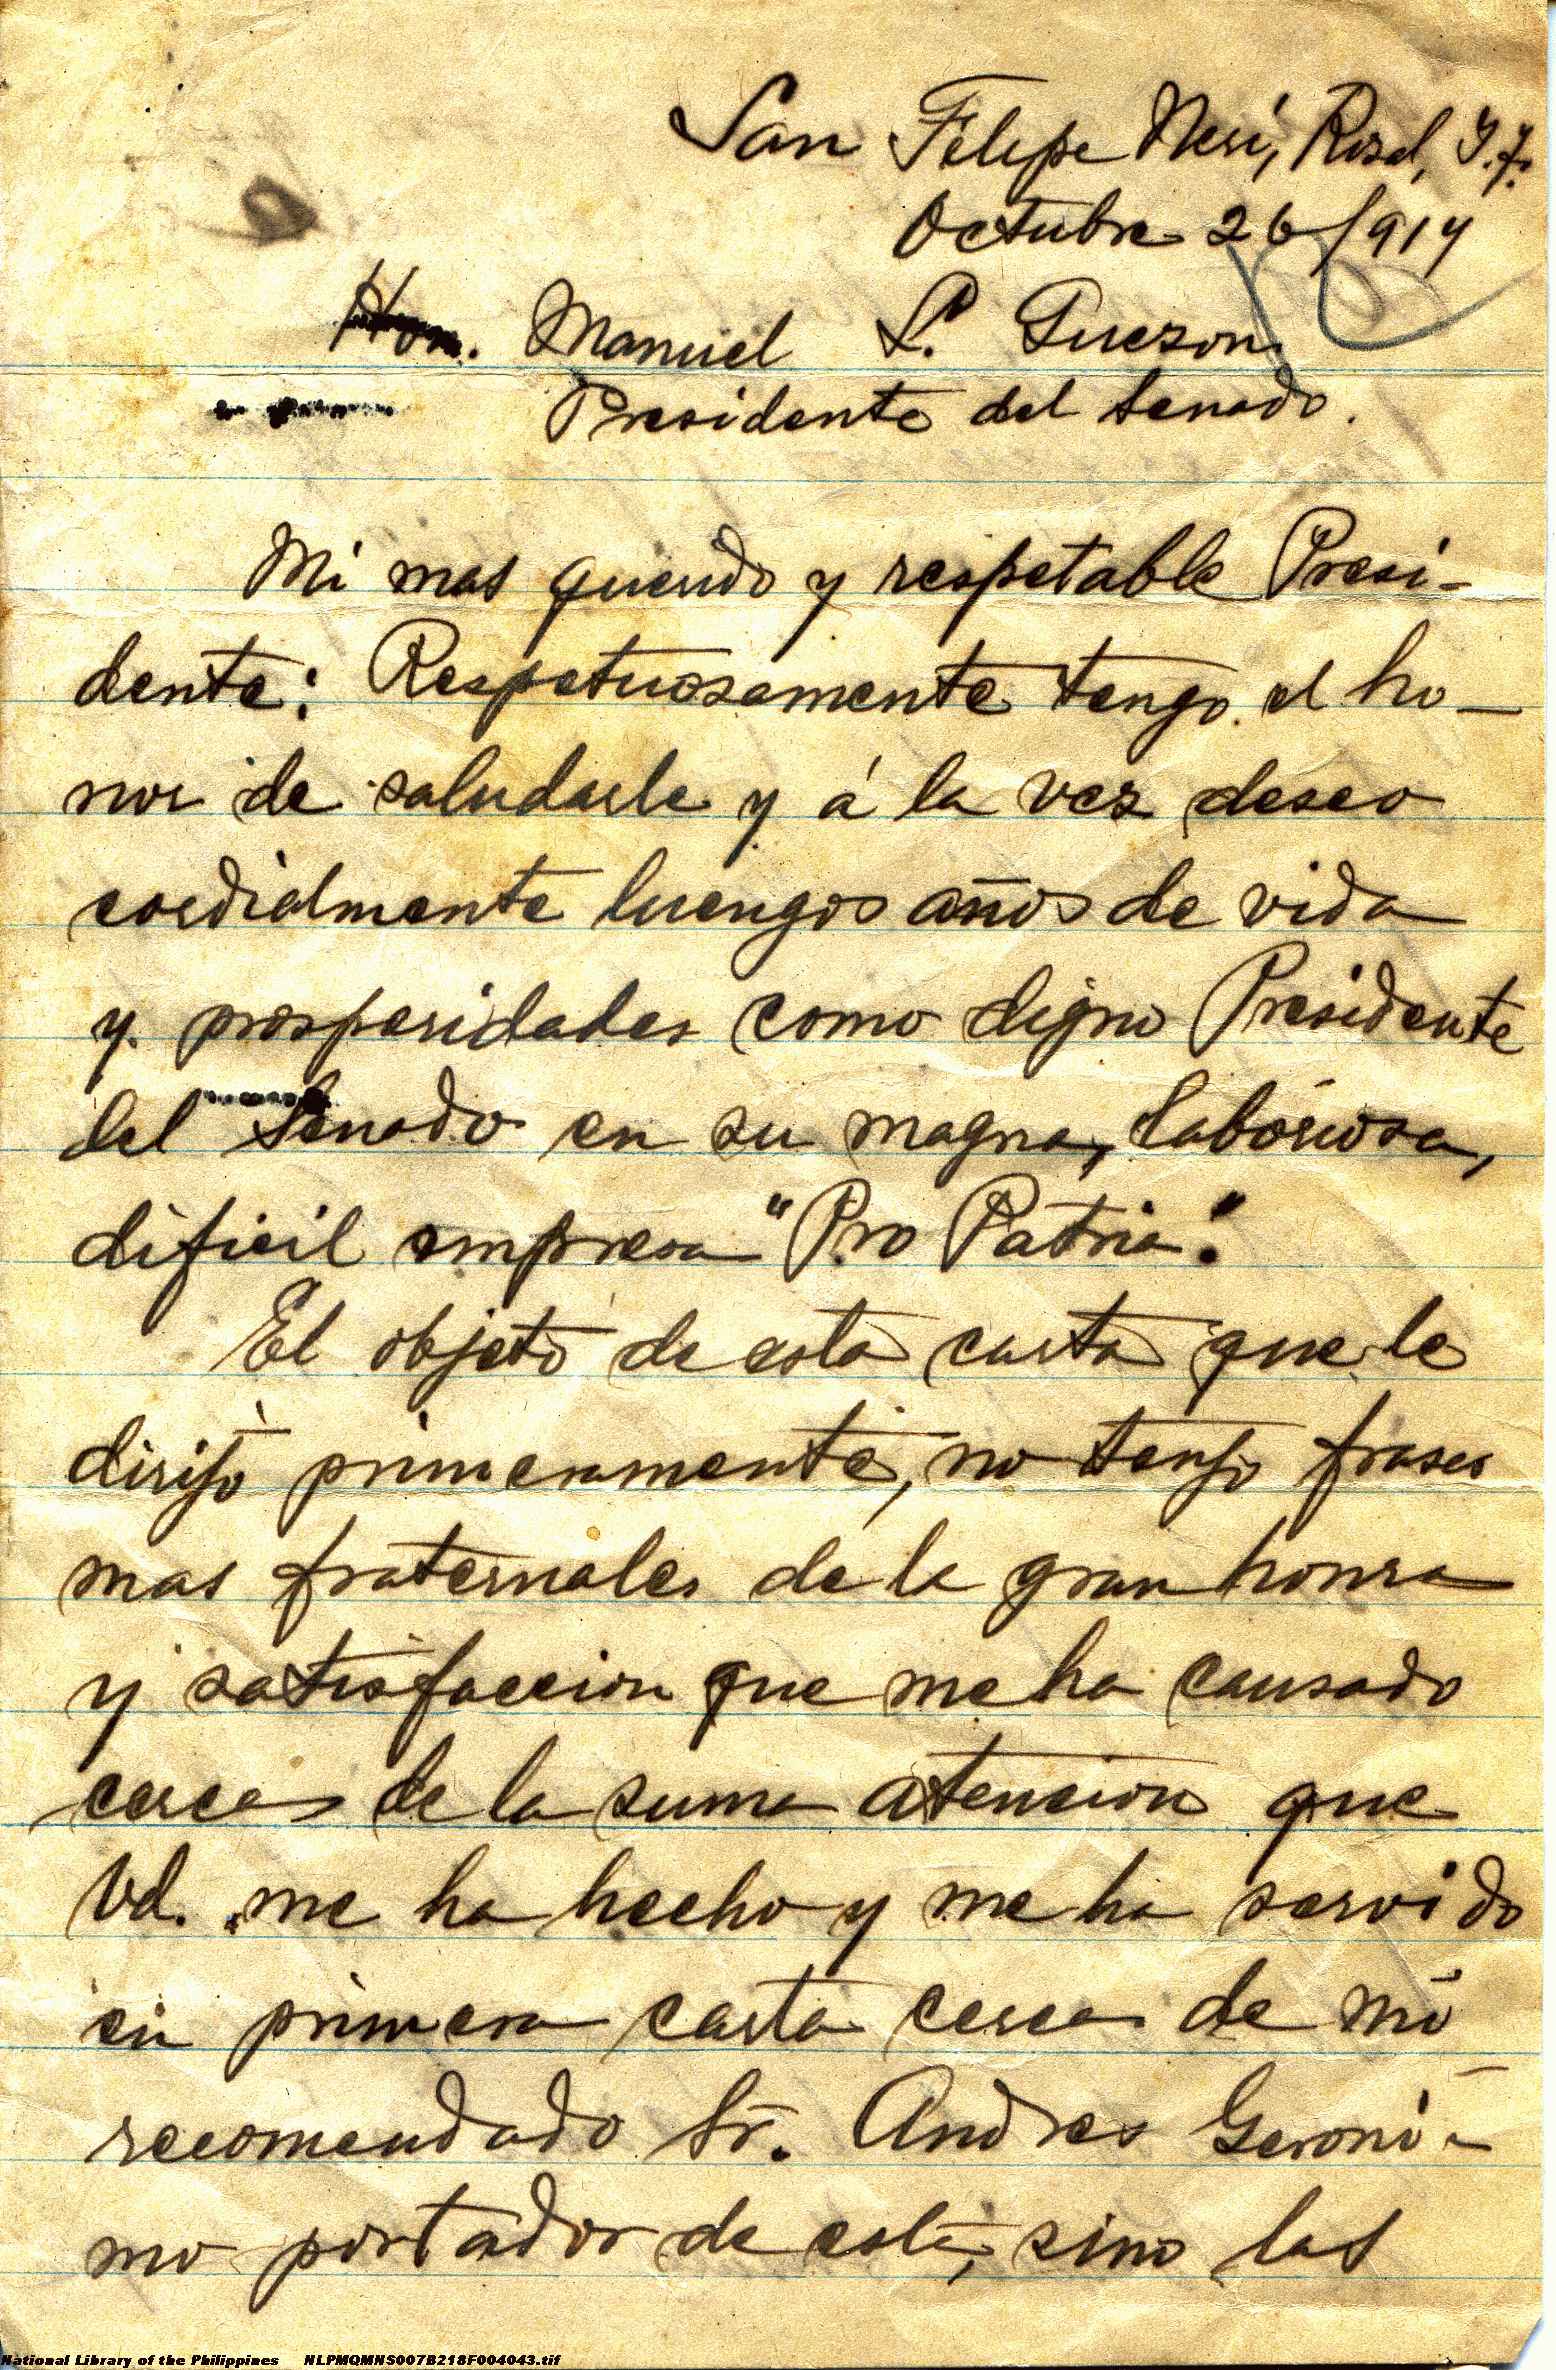 San Felipe Neri, Rizal, I.F.
Octubre 26/917
Hon. Manuel L. Quezon
Presidente del Senado.
Mi mas querido y respetable Presi-
dente: Respetuosamente tengo el ho-
nor de saludarle y á la vez deseo
cordialmente luengos años de vida
y prosperidades como digno Presidente
del Senado en su magna, laboriosa,
dificil empresa "Pro Patria".
El objeto de esta carta que le
dirijo primeramente, no tengo frases
mas fraternales de la gran honra
y satisfaccion que me ha causado
cerca de la suma atencion que
Vd. me ha hecho y me ha servido
en primera carta cerca de mi
recomendado Sr. Andres Geroni-
mo portador de esta, sino las
National Library of the Philippines NLPMQMNS007B218F004043.tif